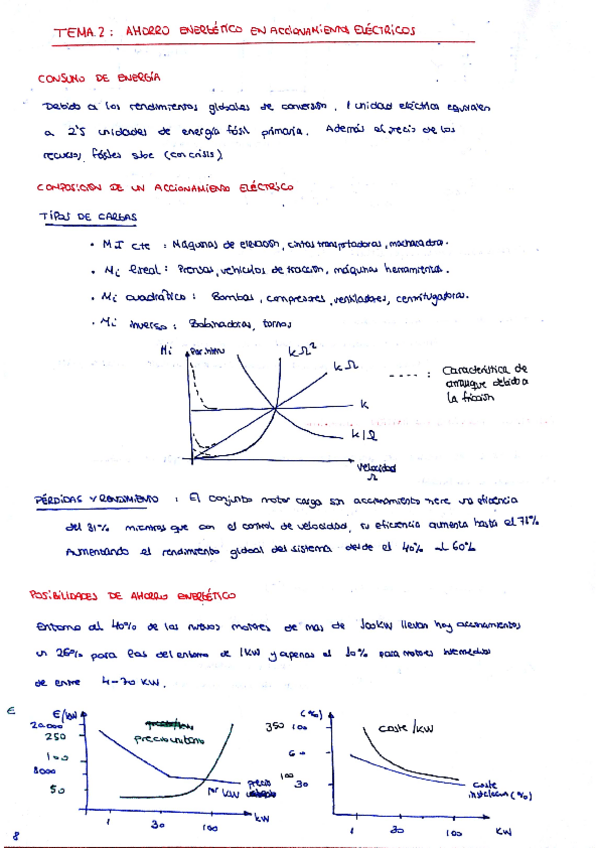 TEMA.2: AHORRO ENERGÉTICO EN ACCIONAMIENTOS ELÉCTRICOS
CONSUMO DE ENERGÍA
Debido a los rendimientos globales de conversión, 1 unidad eléctrica equivalen
a 2'5 unidades de energía fósil primaria. Además el precio de los
recursos fósiles sube (con crisis)
COMPOSICIÓN DE UN ACCIONAMIENTO ELÉCTRICO
TIPOS DE CARGAS
• Mi cte : Máquinas de elevación, cintas transportadoras, machacadora.
• Mi lineal : Prensas, vehículos de tracción, máquinas herramientas.
• Mi cuadrático : Bombas, compresores, ventiladores, centrifugadoras.
• Mi inverso : Bobinadoras, tornos
Mi Par interno kΩ²
kΩ
k
k/Ω
Velocidad
Ω
---- : Característica de
arranque debido a
la fricción
PÉRDIDAS Y RENDIMIENTO : El conjunto motor carga sin accionamiento tiene una eficiencia
del 31% mientras que con el control de velocidad, su eficiencia aumenta hasta el 78%
Aumentando el rendimiento global del sistema desde el 40% al 60%
POSIBILIDADES DE AHORRO ENERGÉTICO
Entorno al 40% de los nuevos motores de más de 100kW llevan hoy accionamientos
un 26% para los del entorno de 1kW y apenas el 10% para motores intermedios
de entre 4-70 KW.
€ €/kW
20.000
250
100
8000
50
precio unitario
precio
por kW
1 30 100 kW
(%)
350 100
60
100
30
coste /KW
coste
instalación (%)
1 30 100 KW
8